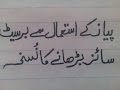 پیاز کے استعمال سے بریسٹ
سائز بڑھانے کا نُسخہ